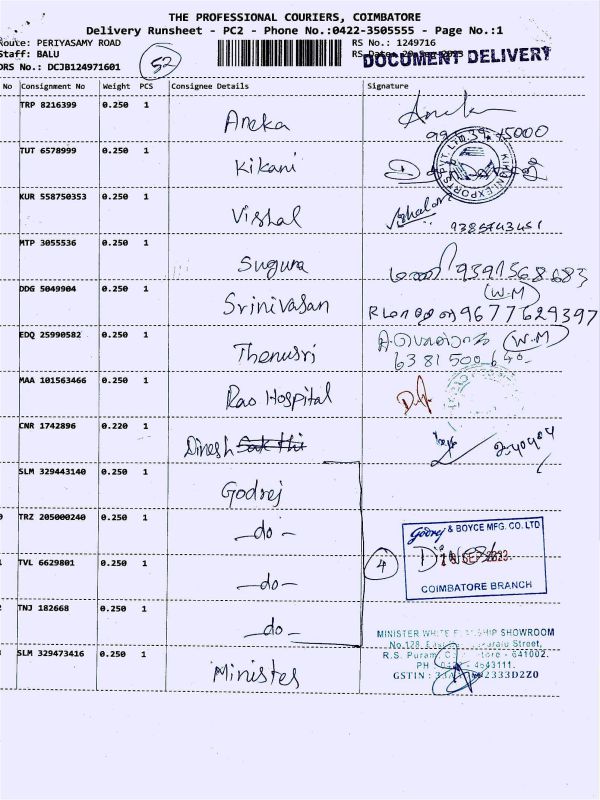 THE PROFESSIONAL COURIERS, COIMBATORE
Delivery Runsheet - PC2 - Phone No.:0422-3505555 - Page No.:1
Route: PERIYASAMY ROAD RS No.: 1249716
Staff: BALU RS Date:
DOCUMENT DELIVERY
DRS No.: DCJB124971601
52
No Consignment No Weight PCS Consignee Details Signature
TRP 8216399 0.250 1 Aneka
TUT 6578999 0.250 1 Kikani
KUR 558750353 0.250 1 Vishal
MTP 3055536 0.250 1 Suguna
DDG 5049904 0.250 1 Srinivasan 9677629397
(W.M)
EDQ 25990582 0.250 1 Thenusri (W.M)
MAA 101563466 0.250 1 Rao Hospital
CNR 1742896 0.220 1 Dinesh
SLM 329443140 0.250 1 Godrej
TRZ 205000240 0.250 1 -do-
Godrej & BOYCE MFG. CO. LTD
TVL 6629801 0.250 1 -do- 4
COIMBATORE BRANCH
TNJ 182668 0.250 1 -do-
SHOWROOM
No.128, Street,
SLM 329473416 0.250 1 Ministes
R.S. Puram, - 641002.
4643111.
GSTIN :